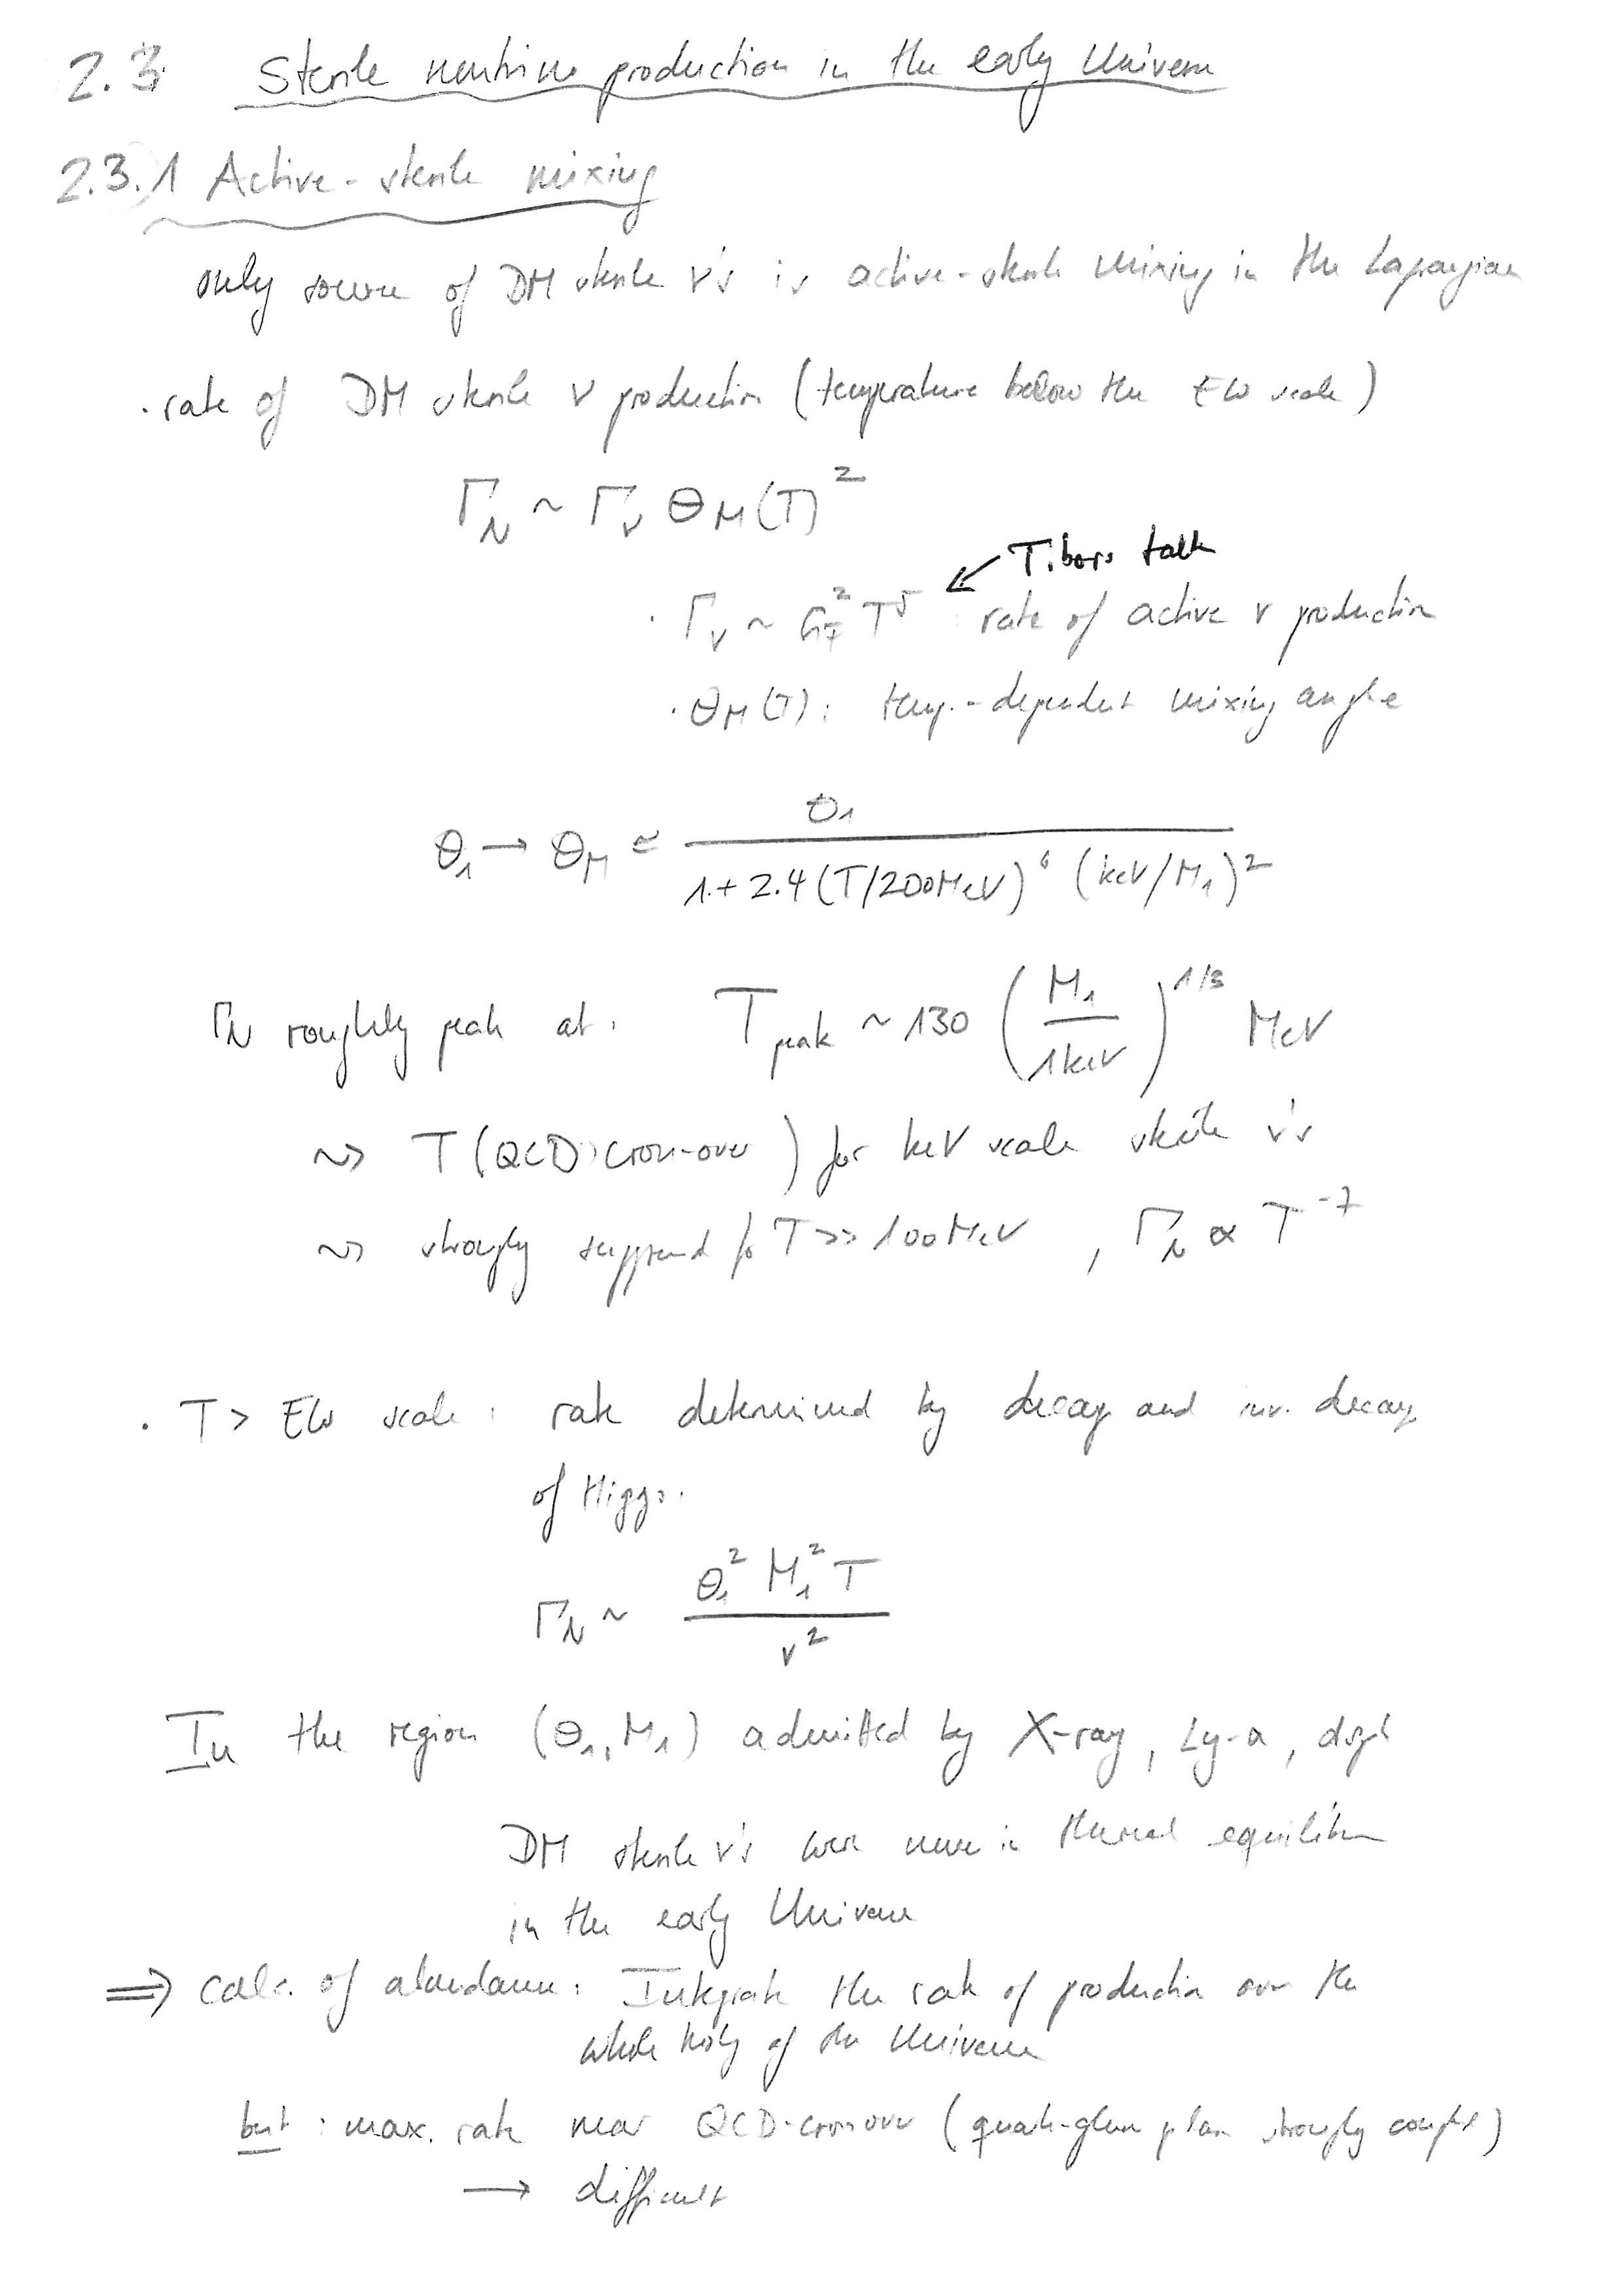 2.3 Sterile neutrino production in the early Universe
2.3.1 Active-sterile mixing
only source of DM sterile ν's is active-sterile mixing in the Lagrangian
· rate of DM sterile ν production (temperature below the EW scale)
Γ_N ~ Γ_ν θ_M(T)^2
Tibors talk
· Γ_ν ~ G_F^2 T^5 : rate of active ν production
· θ_M(T): temp.-dependent mixing angle
θ_1 → θ_M ≃ θ_1 / (1 + 2.4 (T/200MeV)^6 (keV/M_1)^2)
Γ_N roughly peak at: T_peak ~ 130 (M_1 / 1keV)^{1/3} MeV
⇝ T(QCD cross-over) for keV scale sterile ν's
⇝ strongly suppressed for T >> 100MeV, Γ_N ∝ T^{-7}
· T > EW scale: rate determined by decay and inv. decay
of Higgs.
Γ_N ~ θ_1^2 M_1^2 T / v^2
In the region (θ_1, M_1) admitted by X-ray, Ly-α, dSph
DM sterile ν's were never in thermal equilibrium
in the early Universe
⇒ calc. of abundance: Integrate the rate of production over the
whole history of the Universe
but: max. rate near QCD-crossover (quark-gluon plasm strongly coupled)
→ difficult